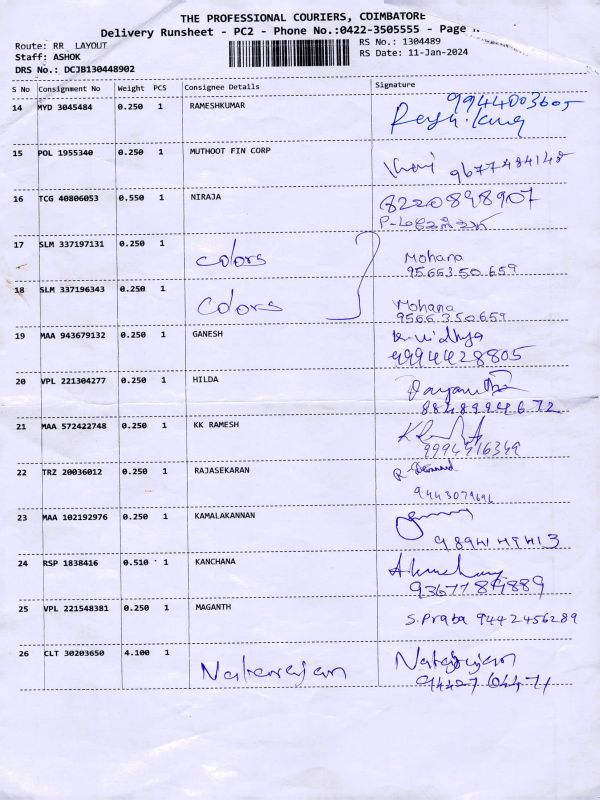 THE PROFESSIONAL COURIERS, COIMBATORE
Delivery Runsheet - PC2 - Phone No.:0422-3505555 - Page
Route: RR LAYOUT RS No.: 1304489
Staff: ASHOK RS Date: 11-Jan-2024
DRS No.: DCJB130448902
S No Consignment No Weight PCS Consignee Details Signature
14 MYD 3045484 0.250 1 RAMESHKUMAR 9944003605
15 POL 1955340 0.250 1 MUTHOOT FIN CORP
9677484148
16 TCG 40806053 0.550 1 NIRAJA 8220898907
17 SLM 337197131 0.250 1 colors Mohana
9566350659
18 SLM 337196343 0.250 1 colors Mohana
9566350659
19 MAA 943679132 0.250 1 GANESH K. vidhya
9994428805
20 VPL 221304277 0.250 1 HILDA
8848994672
21 MAA 572422748 0.250 1 KK RAMESH
9994916349
22 TRZ 20036012 0.250 1 RAJASEKARAN
23 MAA 102192976 0.250 1 KAMALAKANNAN
24 RSP 1838416 0.510 1 KANCHANA
9367789889
25 VPL 221548381 0.250 1 MAGANTH S. Praba 9442456289
26 CLT 30203650 4.100 1 Natarajan Natarajan